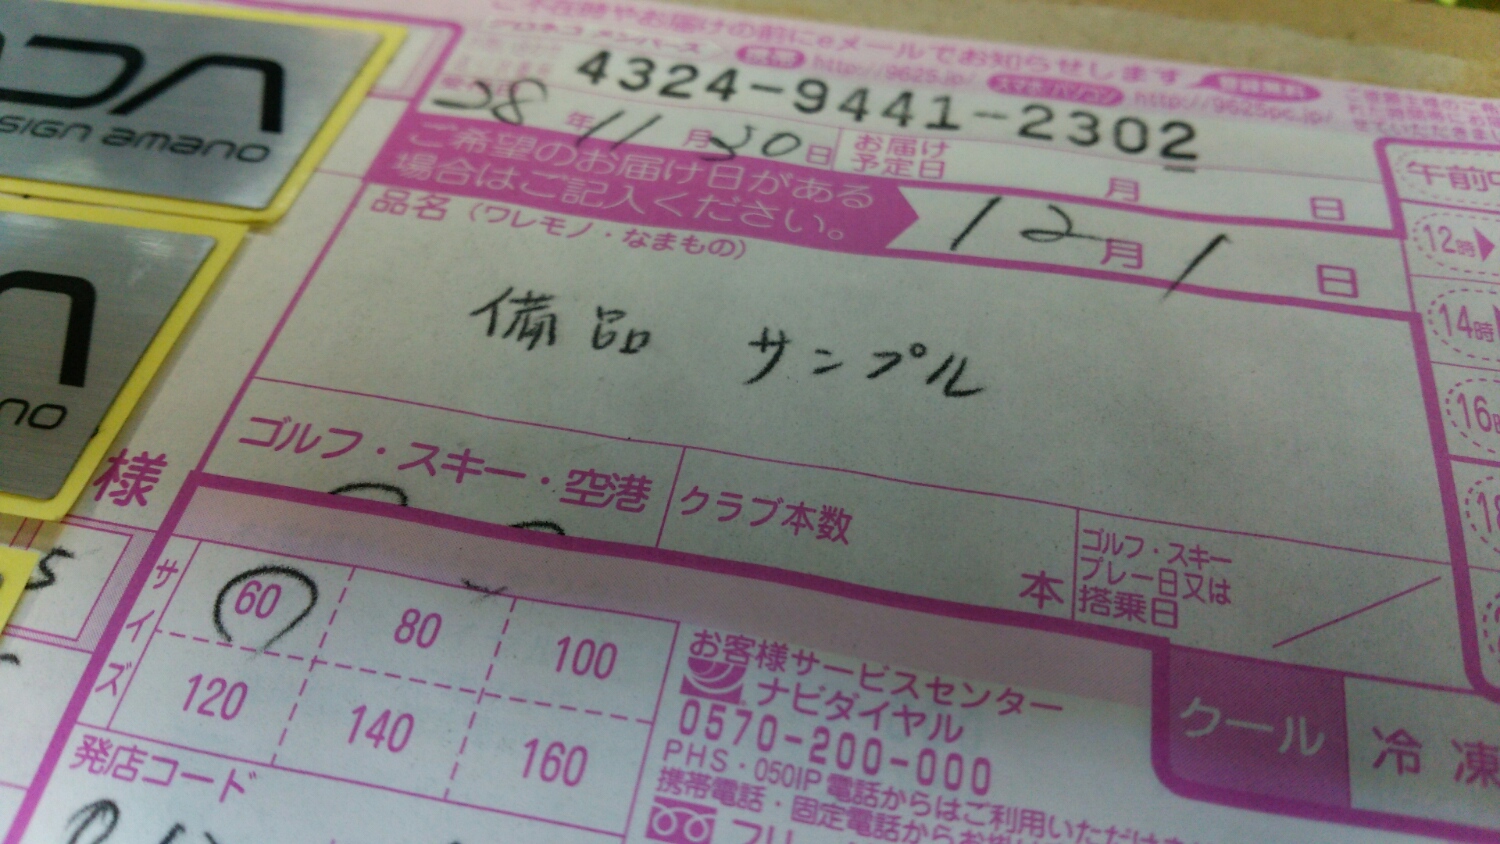 ご不在時やお届けの前にeメールでお知らせします 登録無料
携帯 http://9625.jp/ スマホ/パソコン http://9625pc.jp/
4324-9441-2302
28年11月30日
お届け予定日 月 日
ご希望のお届け日がある
場合はご記入ください。
12月1日
品名(ワレモノ・なまもの)
備品 サンプル
ゴルフ・スキー・空港
クラブ本数
本
ゴルフ・スキー
プレー日又は
搭乗日
午前中
12時
14時
16時
様
サイズ
60
80
100
120
140
160
お客様サービスセンター
ナビダイヤル
0570-200-000
PHS・050IP電話からはご利用いただけま
携帯電話・固定電話からお掛け
フリー
クール
冷凍
発店コード
DA
SIGN amano
no